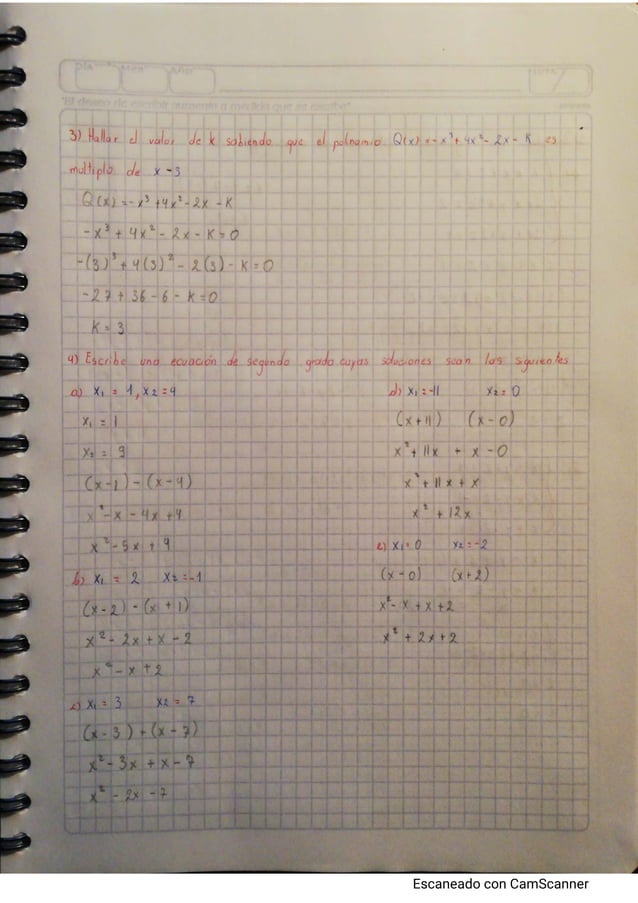 DÍA MES AÑO
"El deseo de escribir aumenta a medida que se escribe"
3) Hallar el valor de k sabiendo que el polnomio Q(x) = -x³ + 4x² - 2x - K es
multiplo de x - 3
Q(x) = -x³ + 4x² - 2x - K
-x³ + 4x² - 2x - K = 0
-(3)³ + 4(3)² - 2(3) - K = 0
-27 + 36 - 6 - K = 0
K = 3
4) Escribe una ecuación de segundo grado cuyas soluciones sean las siguientes
a) x₁ = 1, x₂ = 4
x₁ = 1
(x - 1) - (x - 4)
x² - x - 4x + 4
b) x₁ = 2 x₂ = -1
(x - 2) - (x + 1)
x² - 2x + x - 2
x² - x + 2
c) x₁ = 3 x₂ = 7
(x - 3) + (x - 7)
x² - 3x + x - 7
x² - 2x - 7
d) x₁ = -11 x₂ = 0
(x + 11) (x - 0)
x² + 11x + x - 0
x² + 11x + x
x² + 12x
e) x₁ = 0 x₂ = -2
(x - 0) (x + 2)
x² - x + x + 2
x² + 2x + 2
Escaneado con CamScanner